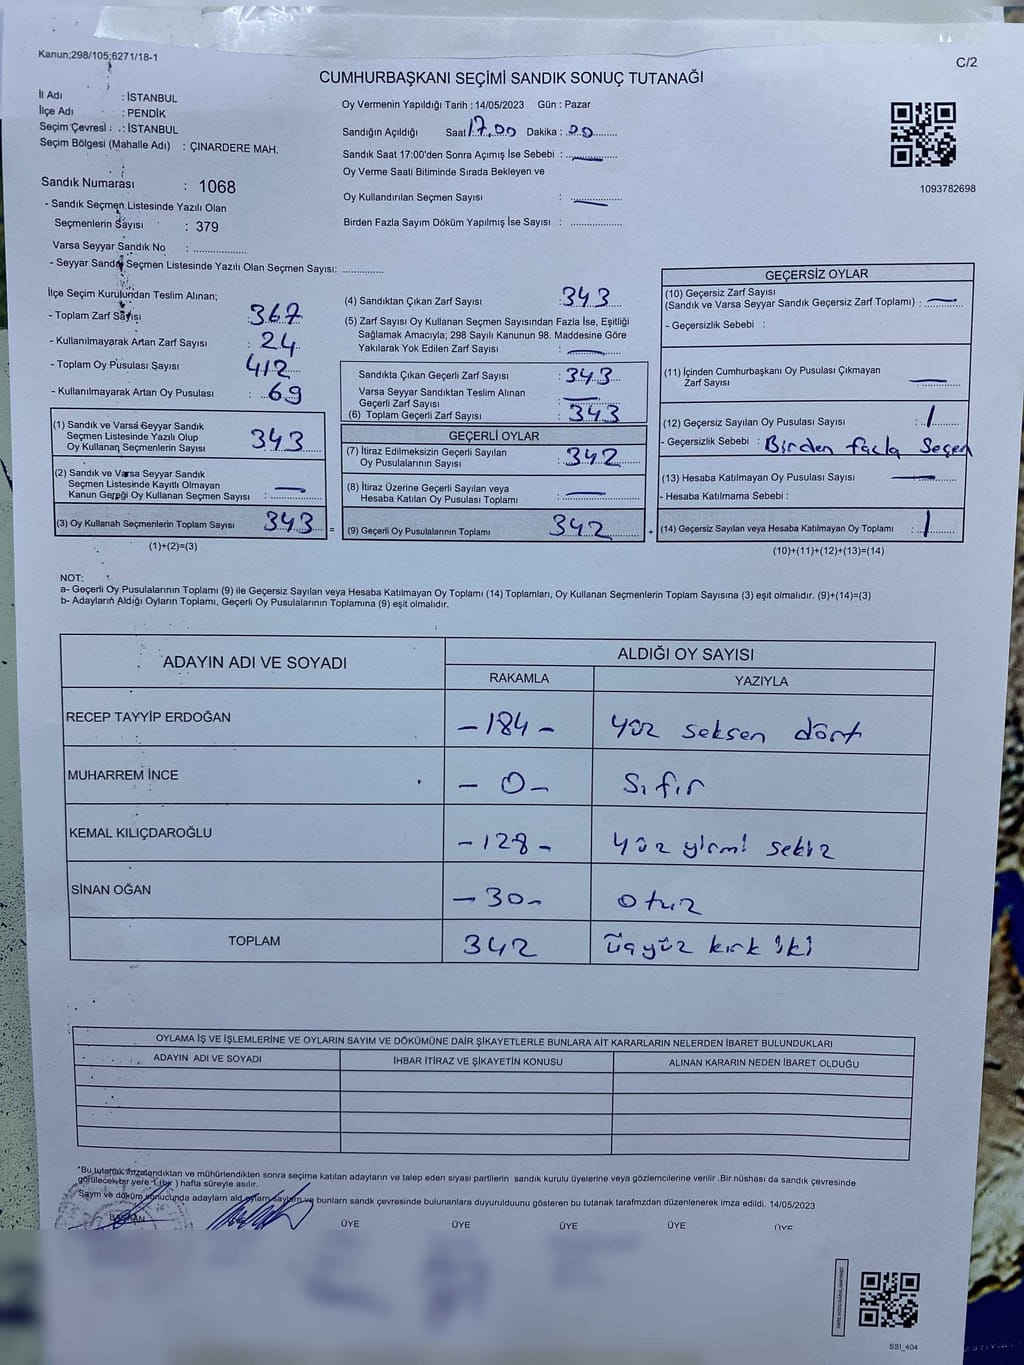 Kanun;298/105;6271/18-1
C/2
CUMHURBAŞKANI SEÇİMİ SANDIK SONUÇ TUTANAĞI
İl Adı : İSTANBUL
İlçe Adı : PENDİK
Seçim Çevresi : .: İSTANBUL
Seçim Bölgesi (Mahalle Adı) : ÇINARDERE MAH.
Sandık Numarası : 1068
- Sandık Seçmen Listesinde Yazılı Olan
Seçmenlerin Sayısı : 379
Varsa Seyyar Sandık No : ................
- Seyyar Sandık Seçmen Listesinde Yazılı Olan Seçmen Sayısı: ............
Oy Vermenin Yapıldığı Tarih : 14/05/2023 Gün : Pazar
Sandığın Açıldığı Saat 17.00 Dakika : 00
Sandık Saat 17:00'den Sonra Açımış İse Sebebi : —
Oy Verme Saati Bitiminde Sırada Bekleyen ve
Oy Kullandırılan Seçmen Sayısı : —
Birden Fazla Sayım Döküm Yapılmış İse Sayısı : ................
1093782698
İlçe Seçim Kurulundan Teslim Alınan;
- Toplam Zarf Sayısı : 367
- Kullanılmayarak Artan Zarf Sayısı : 24
- Toplam Oy Pusulası Sayısı : 412
- Kullanılmayarak Artan Oy Pusulası : 69
(1) Sandık ve Varsa Seyyar Sandık
Seçmen Listesinde Yazılı Olup
Oy Kullanan Seçmenlerin Sayısı : 343
(2) Sandık ve Varsa Seyyar Sandık
Seçmen Listesinde Kayıtlı Olmayan
Kanun Gereği Oy Kullanan Seçmen Sayısı : —
(3) Oy Kullanan Seçmenlerin Toplam Sayısı 343 =
(1)+(2)=(3)
(4) Sandıktan Çıkan Zarf Sayısı : 343
(5) Zarf Sayısı Oy Kullanan Seçmen Sayısından Fazla İse, Eşitliği
Sağlamak Amacıyla; 298 Sayılı Kanunun 98. Maddesine Göre
Yakılarak Yok Edilen Zarf Sayısı : —
Sandıkta Çıkan Geçerli Zarf Sayısı : 343
Varsa Seyyar Sandıktan Teslim Alınan
Geçerli Zarf Sayısı : —
(6) Toplam Geçerli Zarf Sayısı : 343
GEÇERLİ OYLAR
(7) İtiraz Edilmeksizin Geçerli Sayılan
Oy Pusulalarının Sayısı : 342
(8) İtiraz Üzerine Geçerli Sayılan veya
Hesaba Katılan Oy Pusulası Toplamı : —
(9) Geçerli Oy Pusulalarının Toplamı 342 +
GEÇERSİZ OYLAR
(10) Geçersiz Zarf Sayısı
(Sandık ve Varsa Seyyar Sandık Geçersiz Zarf Toplamı) : —
- Geçersizlik Sebebi :
(11) İçinden Cumhurbaşkanı Oy Pusulası Çıkmayan
Zarf Sayısı —
(12) Geçersiz Sayılan Oy Pusulası Sayısı : 1
- Geçersizlik Sebebi : Birden fazla Seçen
(13) Hesaba Katılmayan Oy Pusulası Sayısı —
- Hesaba Katılmama Sebebi :
(14) Geçersiz Sayılan veya Hesaba Katılmayan Oy Toplamı : 1
(10)+(11)+(12)+(13)=(14)
NOT:
a- Geçerli Oy Pusulalarının Toplamı (9) ile Geçersiz Sayılan veya Hesaba Katılmayan Oy Toplamı (14) Toplamları, Oy Kullanan Seçmenlerin Toplam Sayısına (3) eşit olmalıdır. (9)+(14)=(3)
b- Adayların Aldığı Oyların Toplamı, Geçerli Oy Pusulalarının Toplamına (9) eşit olmalıdır.
ADAYIN ADI VE SOYADI
ALDIĞI OY SAYISI
RAKAMLA YAZIYLA
RECEP TAYYİP ERDOĞAN – 184 – yüz seksen dört
MUHARREM İNCE – 0 – Sıfır
KEMAL KILIÇDAROĞLU – 128 – yüz yirmi sekiz
SİNAN OĞAN – 30 – otuz
TOPLAM 342 üçyüz kırk iki
OYLAMA İŞ VE İŞLEMLERİNE VE OYLARIN SAYIM VE DÖKÜMÜNE DAİR ŞİKAYETLERLE BUNLARA AİT KARARLARIN NELERDEN İBARET BULUNDUKLARI
ADAYIN ADI VE SOYADI İHBAR İTİRAZ VE ŞİKAYETİN KONUSU ALINAN KARARIN NEDEN İBARET OLDUĞU
*Bu tutanak imzalandıktan ve mühürlendikten sonra seçime katılan adayların ve talep eden siyasi partilerin sandık kurulu üyelerine veya gözlemcilerine verilir .Bir nüshası da sandık çevresinde
görülecek bir yere 1 (bir ) hafta süreyle asılır.
Sayım ve döküm sonucunda adayların ald oyların sayıların ve bunların sandk çevresinde bulunanlara duyurulduunu gösteren bu tutanak tarafmzdan düzenlenerek imza edildi. 14/05/2023
BAŞKAN ÜYE ÜYE ÜYE ÜYE ÜYE
SSI_404